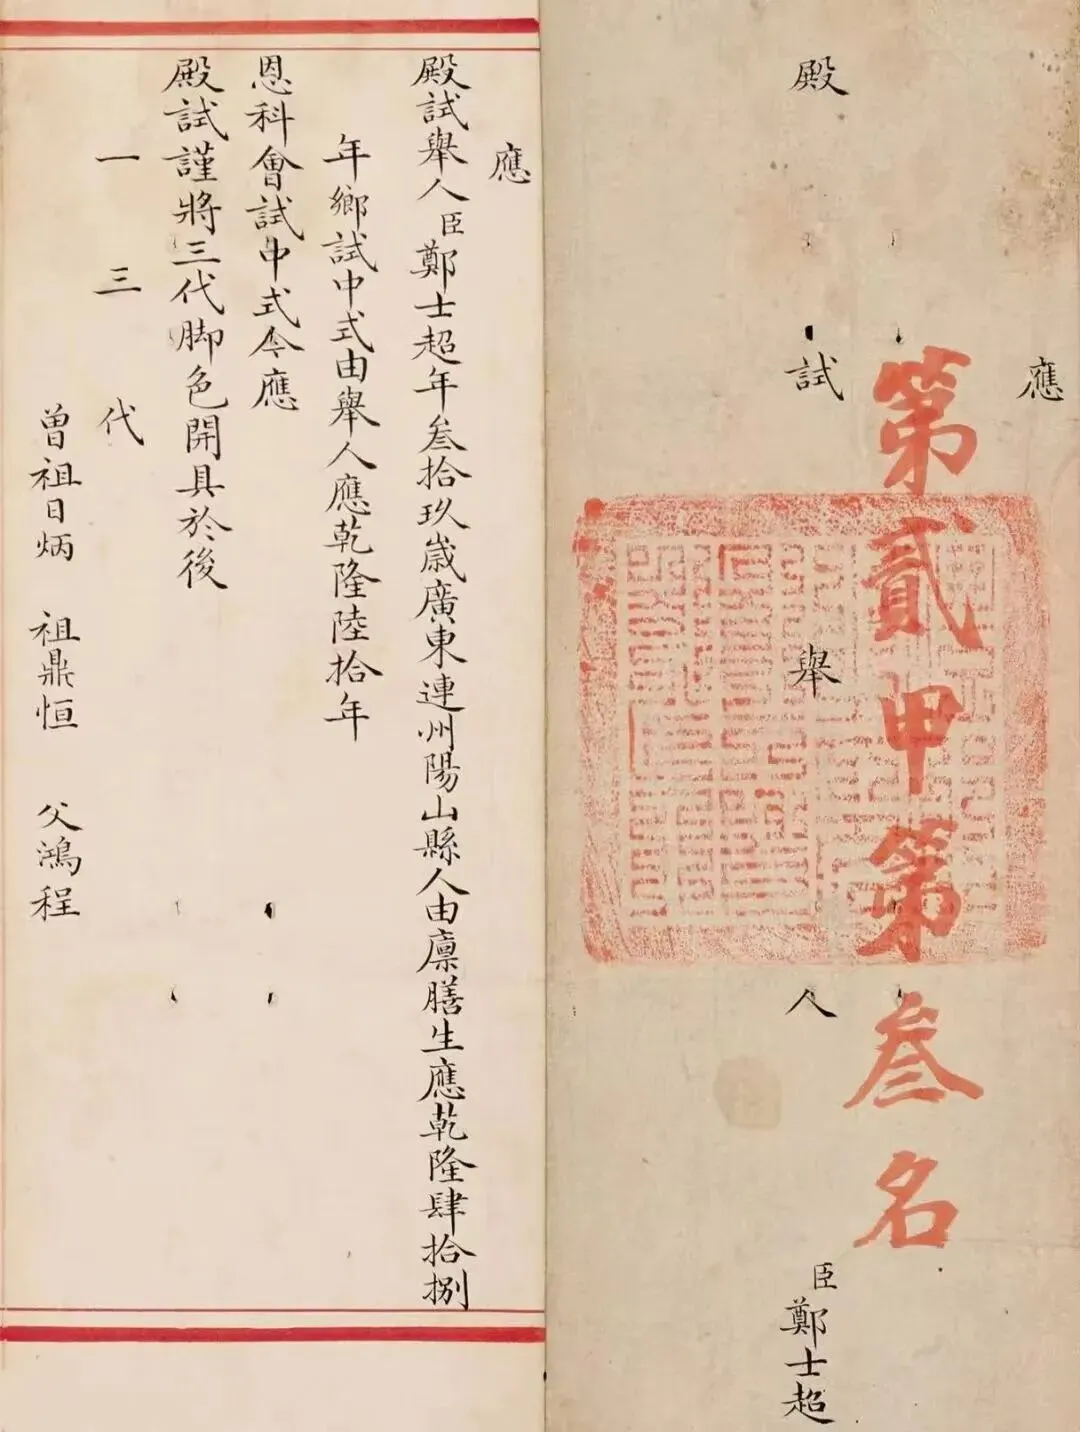 應
第貳甲第叁名
殿試舉人臣鄭士超
應
殿試舉人臣鄭士超年叁拾玖歲廣東連州陽山縣人由廩膳生應乾隆肆拾捌
年鄉試中式由舉人應乾隆陸拾年
恩科會試中式今應
殿試謹將三代脚色開具於後
一三代
曾祖日炳 祖鼎恒 父鴻程